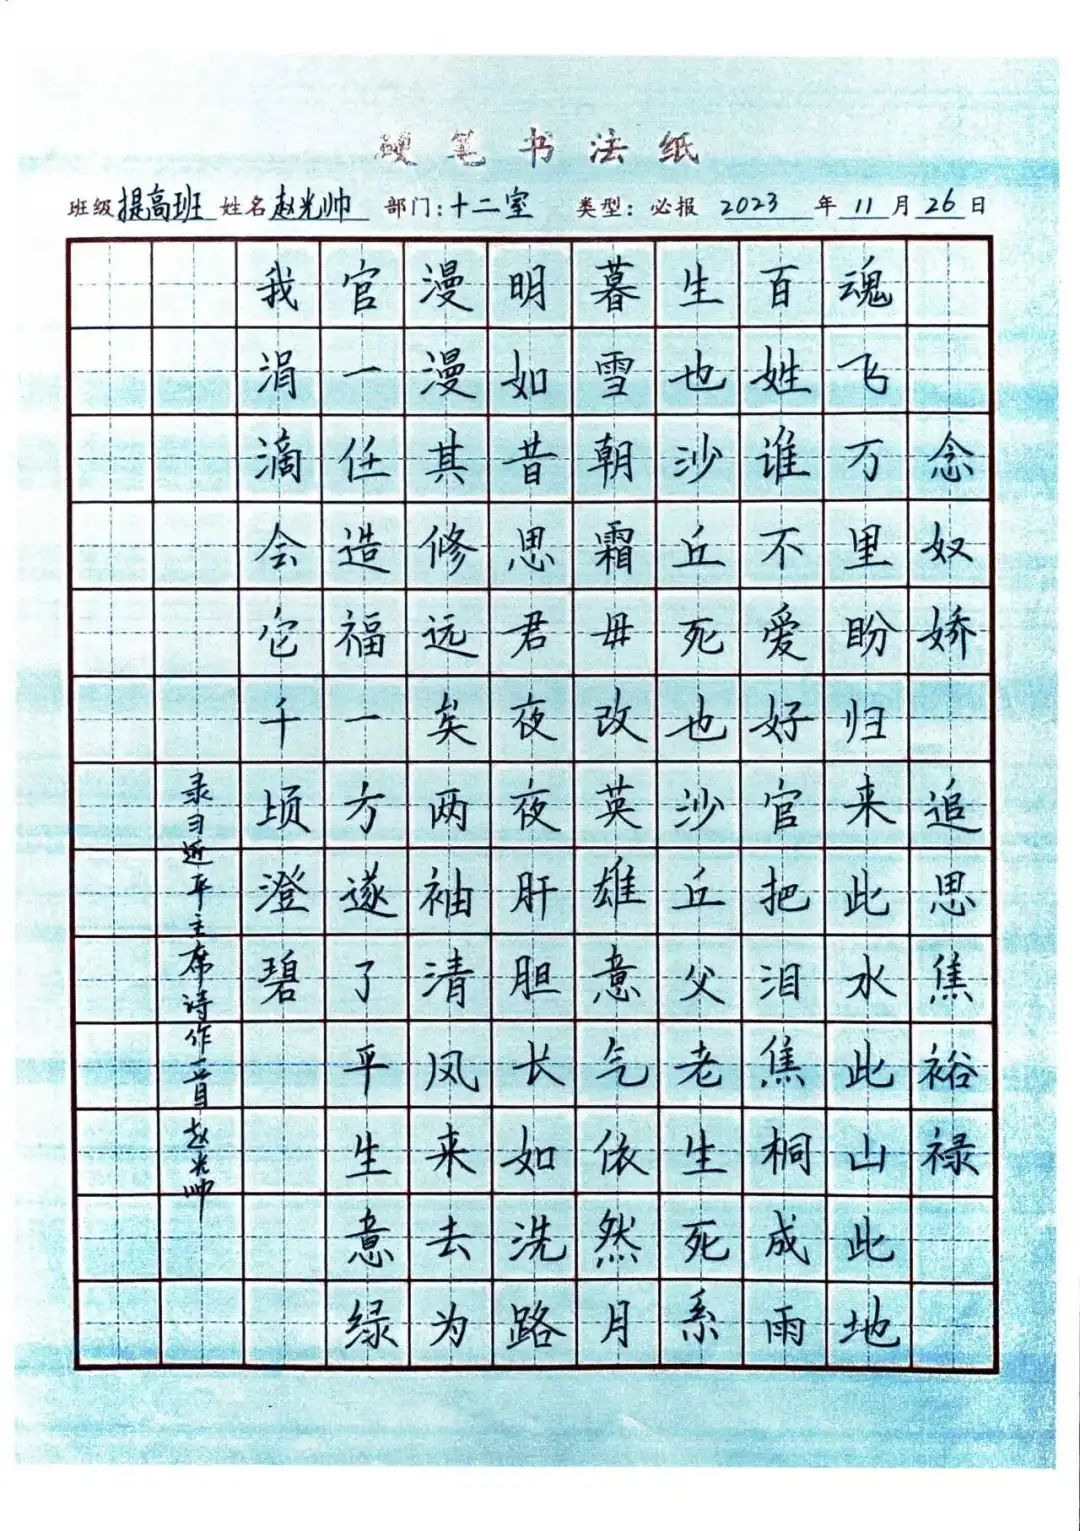 硬笔书法纸
班级 提高班 姓名 赵光帅 部门: 十二室 类型: 必报 2023 年 11 月 26 日
念奴娇 追思焦裕禄
魂飞万里盼归来此水此山此地
百姓谁不爱好官把泪焦桐成雨
生也沙丘死也沙丘父老生死系
暮雪朝霜毋改英雄意气依然月
明如昔思君夜夜肝胆长如洗路
漫漫其修远矣两袖清风来去为
官一任造福一方遂了平生意绿
我涓滴会它千顷澄碧
录习近平主席诗作一首赵光帅